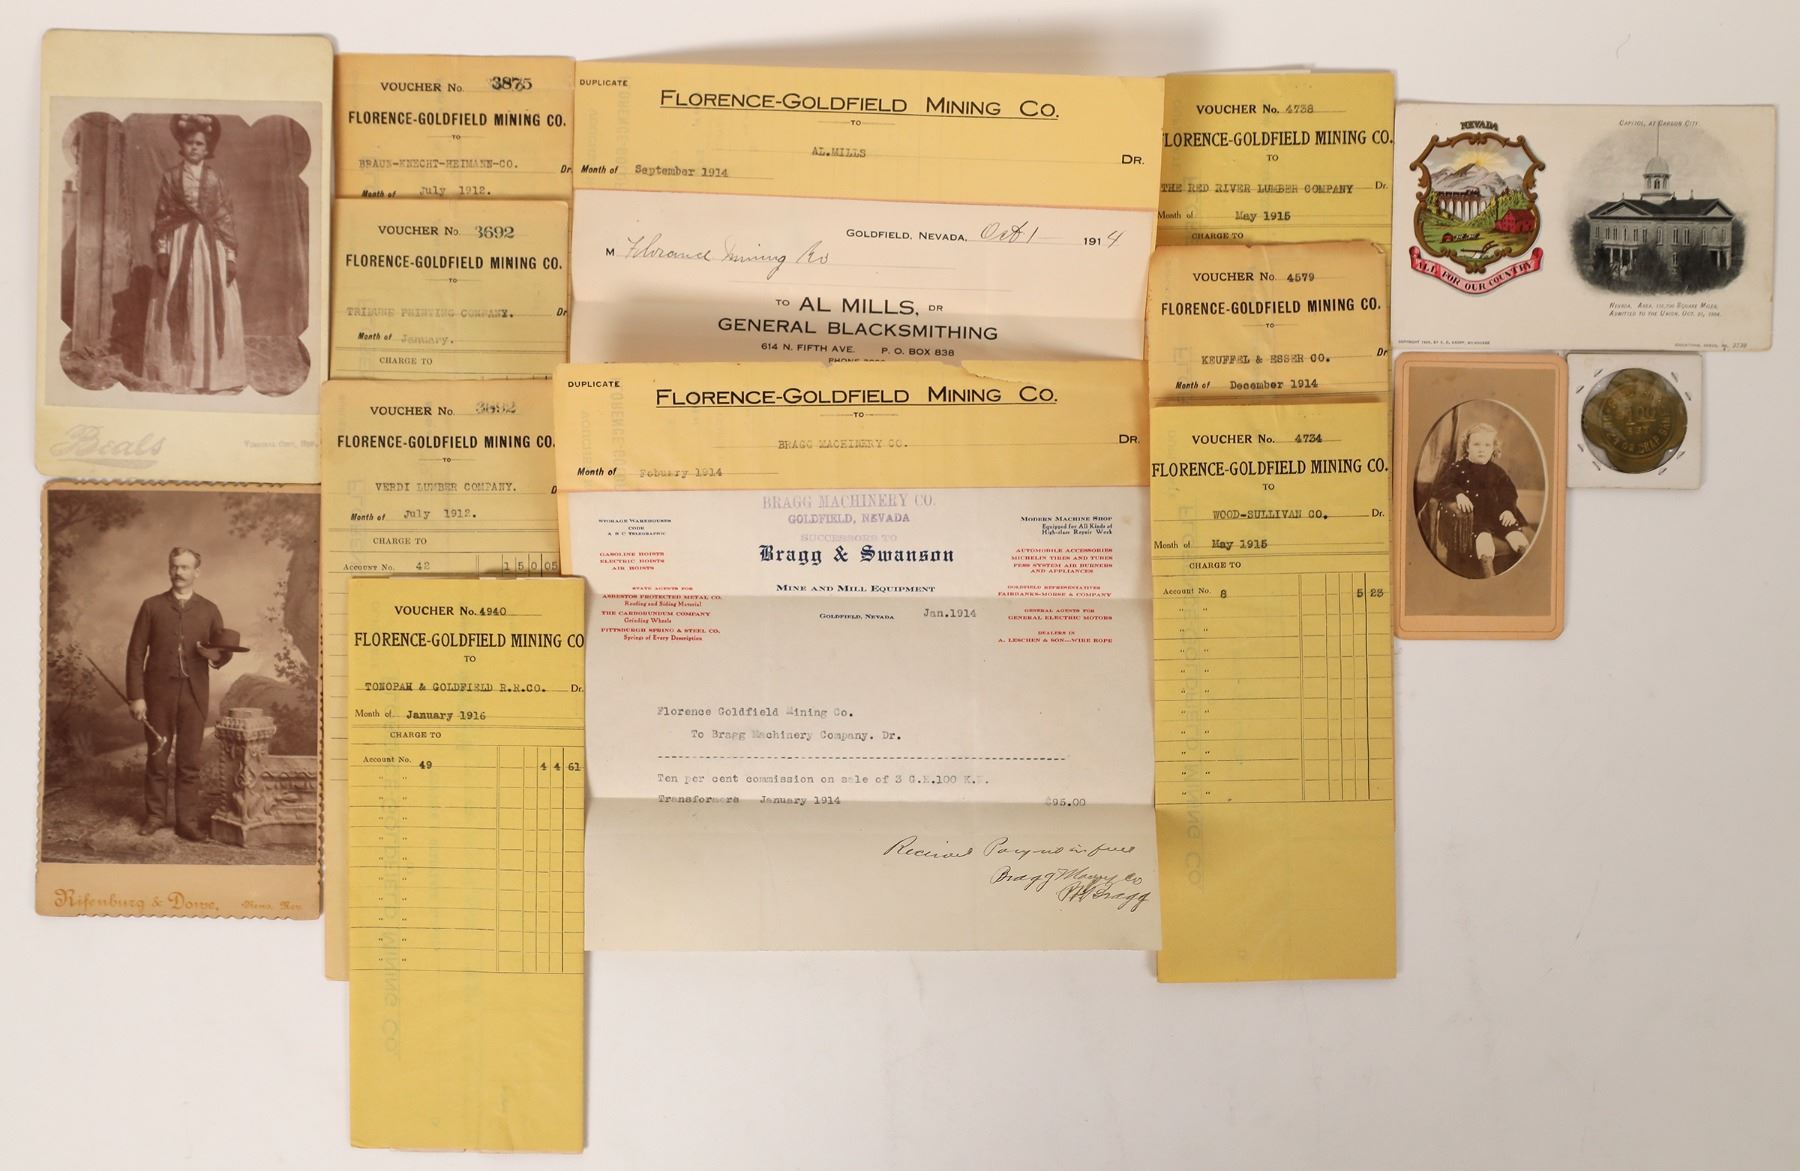 Beals
Virginia City, Nev.
Rifenburg & Dowe,
Reno, Nev.
VOUCHER No. 3875
FLORENCE-GOLDFIELD MINING CO.
TO
BRAUN-KNECHT-HEIMANN-CO.
Dr.
Month of July 1912.
VOUCHER No. 3692
FLORENCE-GOLDFIELD MINING CO.
TO
TRIBUNE PRINTING COMPANY.
Dr
Month of January.
CHARGE TO
VOUCHER No.
FLORENCE-GOLDFIELD MINING CO.
TO
VERDI LUMBER COMPANY.
D
Month of July 1912.
CHARGE TO
Account No. 42 150 05
VOUCHER No. 4940
FLORENCE-GOLDFIELD MINING CO
TO
TONOPAH & GOLDFIELD R.R.CO. Dr.
Month of January 1916
CHARGE TO
Account No. 49 44 61
DUPLICATE
FLORENCE-GOLDFIELD MINING CO.
TO
AL.MILLS
DR.
Month of September 1914
GOLDFIELD, NEVADA, Oct 1 1914
M Florance Mining Co
TO AL MILLS, DR
GENERAL BLACKSMITHING
614 N. FIFTH AVE. P. O. BOX 838
DUPLICATE
FLORENCE-GOLDFIELD MINING CO.
TO
BRAGG MACHINERY CO.
DR.
Month of Febuarry 1914
BRAGG MACHINERY CO.
GOLDFIELD, NEVADA
SUCCESSORS TO
Bragg & Swanson
MINE AND MILL EQUIPMENT
GOLDFIELD, NEVADA Jan.1914
STORAGE WAREHOUSES
CODE
A B C TELEGRAPHIC
GASOLINE HOISTS
ELECTRIC HOISTS
AIR HOISTS
STATE AGENTS FOR
ASBESTOS PROTECTED METAL CO.
Roofing and Siding Material
THE CARBORUNDUM COMPANY
Grinding Wheels
PITTSBURGH SPRING & STEEL CO.
Springs of Every Description
MODERN MACHINE SHOP
Equipped for All Kinds of
High-class Repair Work
AUTOMOBILE ACCESSORIES
MICHELIN TIRES AND TUBES
PESS SYSTEM AIR BURNERS
AND APPLIANCES
GOLDFIELD REPRESENTATIVES
FAIRBANKS-MORSE & COMPANY
GENERAL AGENTS FOR
GENERAL ELECTRIC MOTORS
DEALERS IN
A. LESCHEN & SON—WIRE ROPE
Florence Goldfield Mining Co.
To Bragg Machinery Company. Dr.
Ten per cent commission on sale of 3 G.E.100 K.
Transformers January 1914 $95.00
Received Payment in full
Bragg Machy Co
Bragg
VOUCHER No. 4738
FLORENCE-GOLDFIELD MINING CO.
TO
THE RED RIVER LUMBER COMPANY Dr.
Month of May 1915
CHARGE TO
VOUCHER No. 4579
FLORENCE-GOLDFIELD MINING CO.
TO
KEUFFEL & ESSER CO. Dr
Month of December 1914
VOUCHER No. 4734
FLORENCE-GOLDFIELD MINING CO.
TO
WOOD-SULLIVAN CO. Dr.
Month of May 1915
CHARGE TO
Account No. 8 5 23
NEVADA
ALL FOR OUR COUNTRY
CAPITOL, AT CARSON CITY.
NEVADA. AREA, 110,700 SQUARE MILES,
ADMITTED TO THE UNION, OCT. 31, 1864.